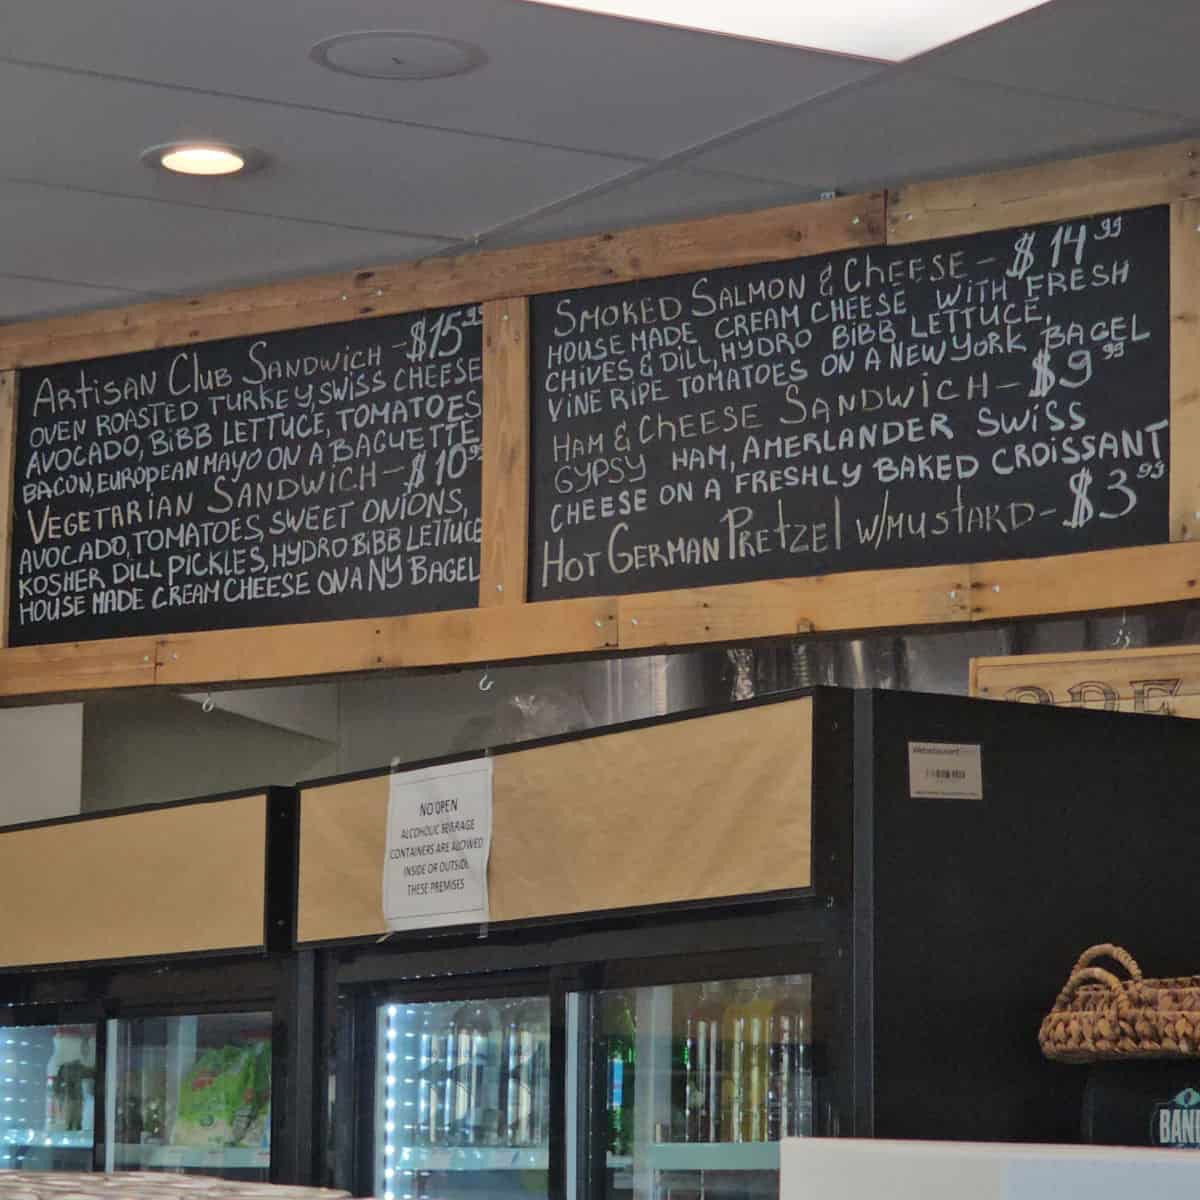 Artisan Club Sandwich - $15.99
OVEN ROASTED TURKEY, SWISS CHEESE
AVOCADO, BIBB LETTUCE, TOMATOES
BACON, EUROPEAN MAYO ON A BAGUETTE
VEGETARIAN SANDWICH - $10.99
AVOCADO, TOMATOES, SWEET ONIONS,
KOSHER DILL PICKLES, HYDRO BIBB LETTUCE
HOUSE MADE CREAM CHEESE ON A NY BAGEL
SMOKED SALMON & CHEESE - $14.99
HOUSE MADE CREAM CHEESE WITH FRESH
CHIVES & DILL, HYDRO BIBB LETTUCE,
VINE RIPE TOMATOES ON A NEW YORK BAGEL
HAM & CHEESE SANDWICH - $9.99
GYPSY HAM, AMERLANDER SWISS
CHEESE ON A FRESHLY BAKED CROISSANT
HOT GERMAN PRETZEL W/MUSTARD - $3.99
NO OPEN
ALCOHOLIC BERRAGE
CONTAINERS ARE ALOWED
INSIDE OR OUTSIDE
THESE PREMISES
Webstaurant
BAN